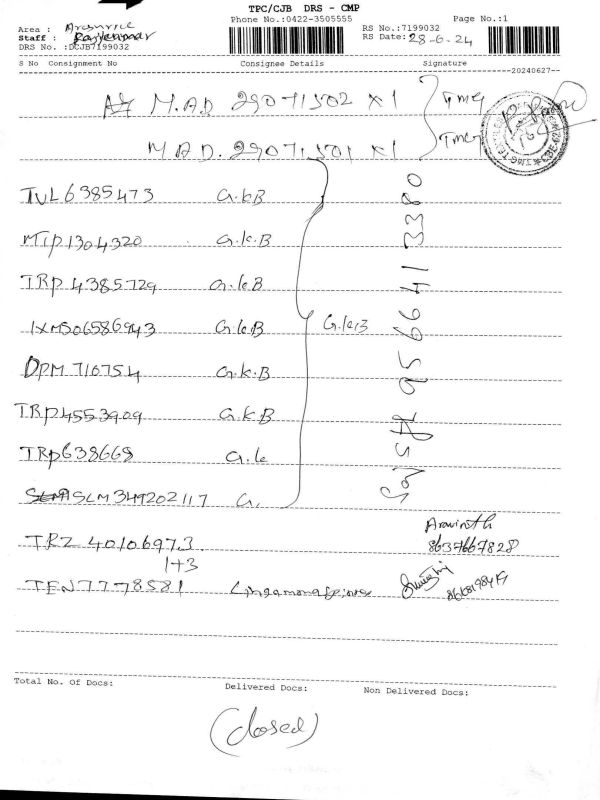 TPC/CJB DRS - CMP
Phone No.:0422-3505555
Page No.:1
Area :
Staff : Rajkumar
DRS No. :DCJB7199032
RS No.:7199032
RS Date: 28-6-24
S No Consignment No Consignee Details Signature
20240627--
M.A.D 29071502 x 1 Tmg
M A D. 29071501 x 1 Tmg
TUL6385473 G.k.B
MTP1304320 G.k.B
TRP 4385729 G.k.B
IXM506586943 G.k.B G.k.B
DPM 710754 G.k.B
TRP4553909 G.k.B
TRP638668 G.k
SLM349202117 G.
95 66 41 3380
TRZ 40106973
1+3
Aravinth
8637667828
TEN7778581
Total No. Of Docs: Delivered Docs: Non Delivered Docs:
(closed)